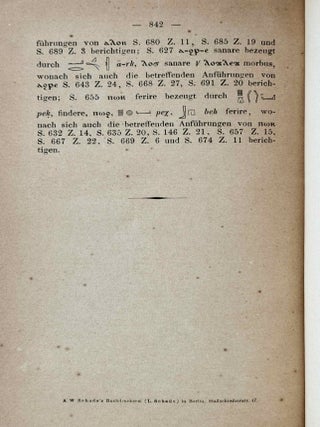 — 842 —
führungen von ⲁⲗⲟⲕ S. 680 Z. 11, S. 685 Z. 19 und
S. 689 Z. 3 berichtigen; S. 627 sanare bezeugt
durch sanare morbus,
wonach sich auch die betreffenden Anführungen von
S. 643 Z. 24, S. 668 Z. 27, S. 691 Z. 20 berich-
tigen; S. 655 ⲡⲱⲕ ferire bezeugt durch
pek, findere, peχ, beh ferire, wo-
nach sich auch die betreffenden Anführungen von ⲡⲱⲕ
S. 632 Z. 14, S. 635 Z. 20, S. 146 Z. 21, S. 657 Z. 15,
S. 667 Z. 22, S. 669 Z. 6 und S. 674 Z. 11 berich-
tigen.
A. W. Schade's Buchdruckerei (L. Schade) in Berlin, Stallschreiberstr. 47.